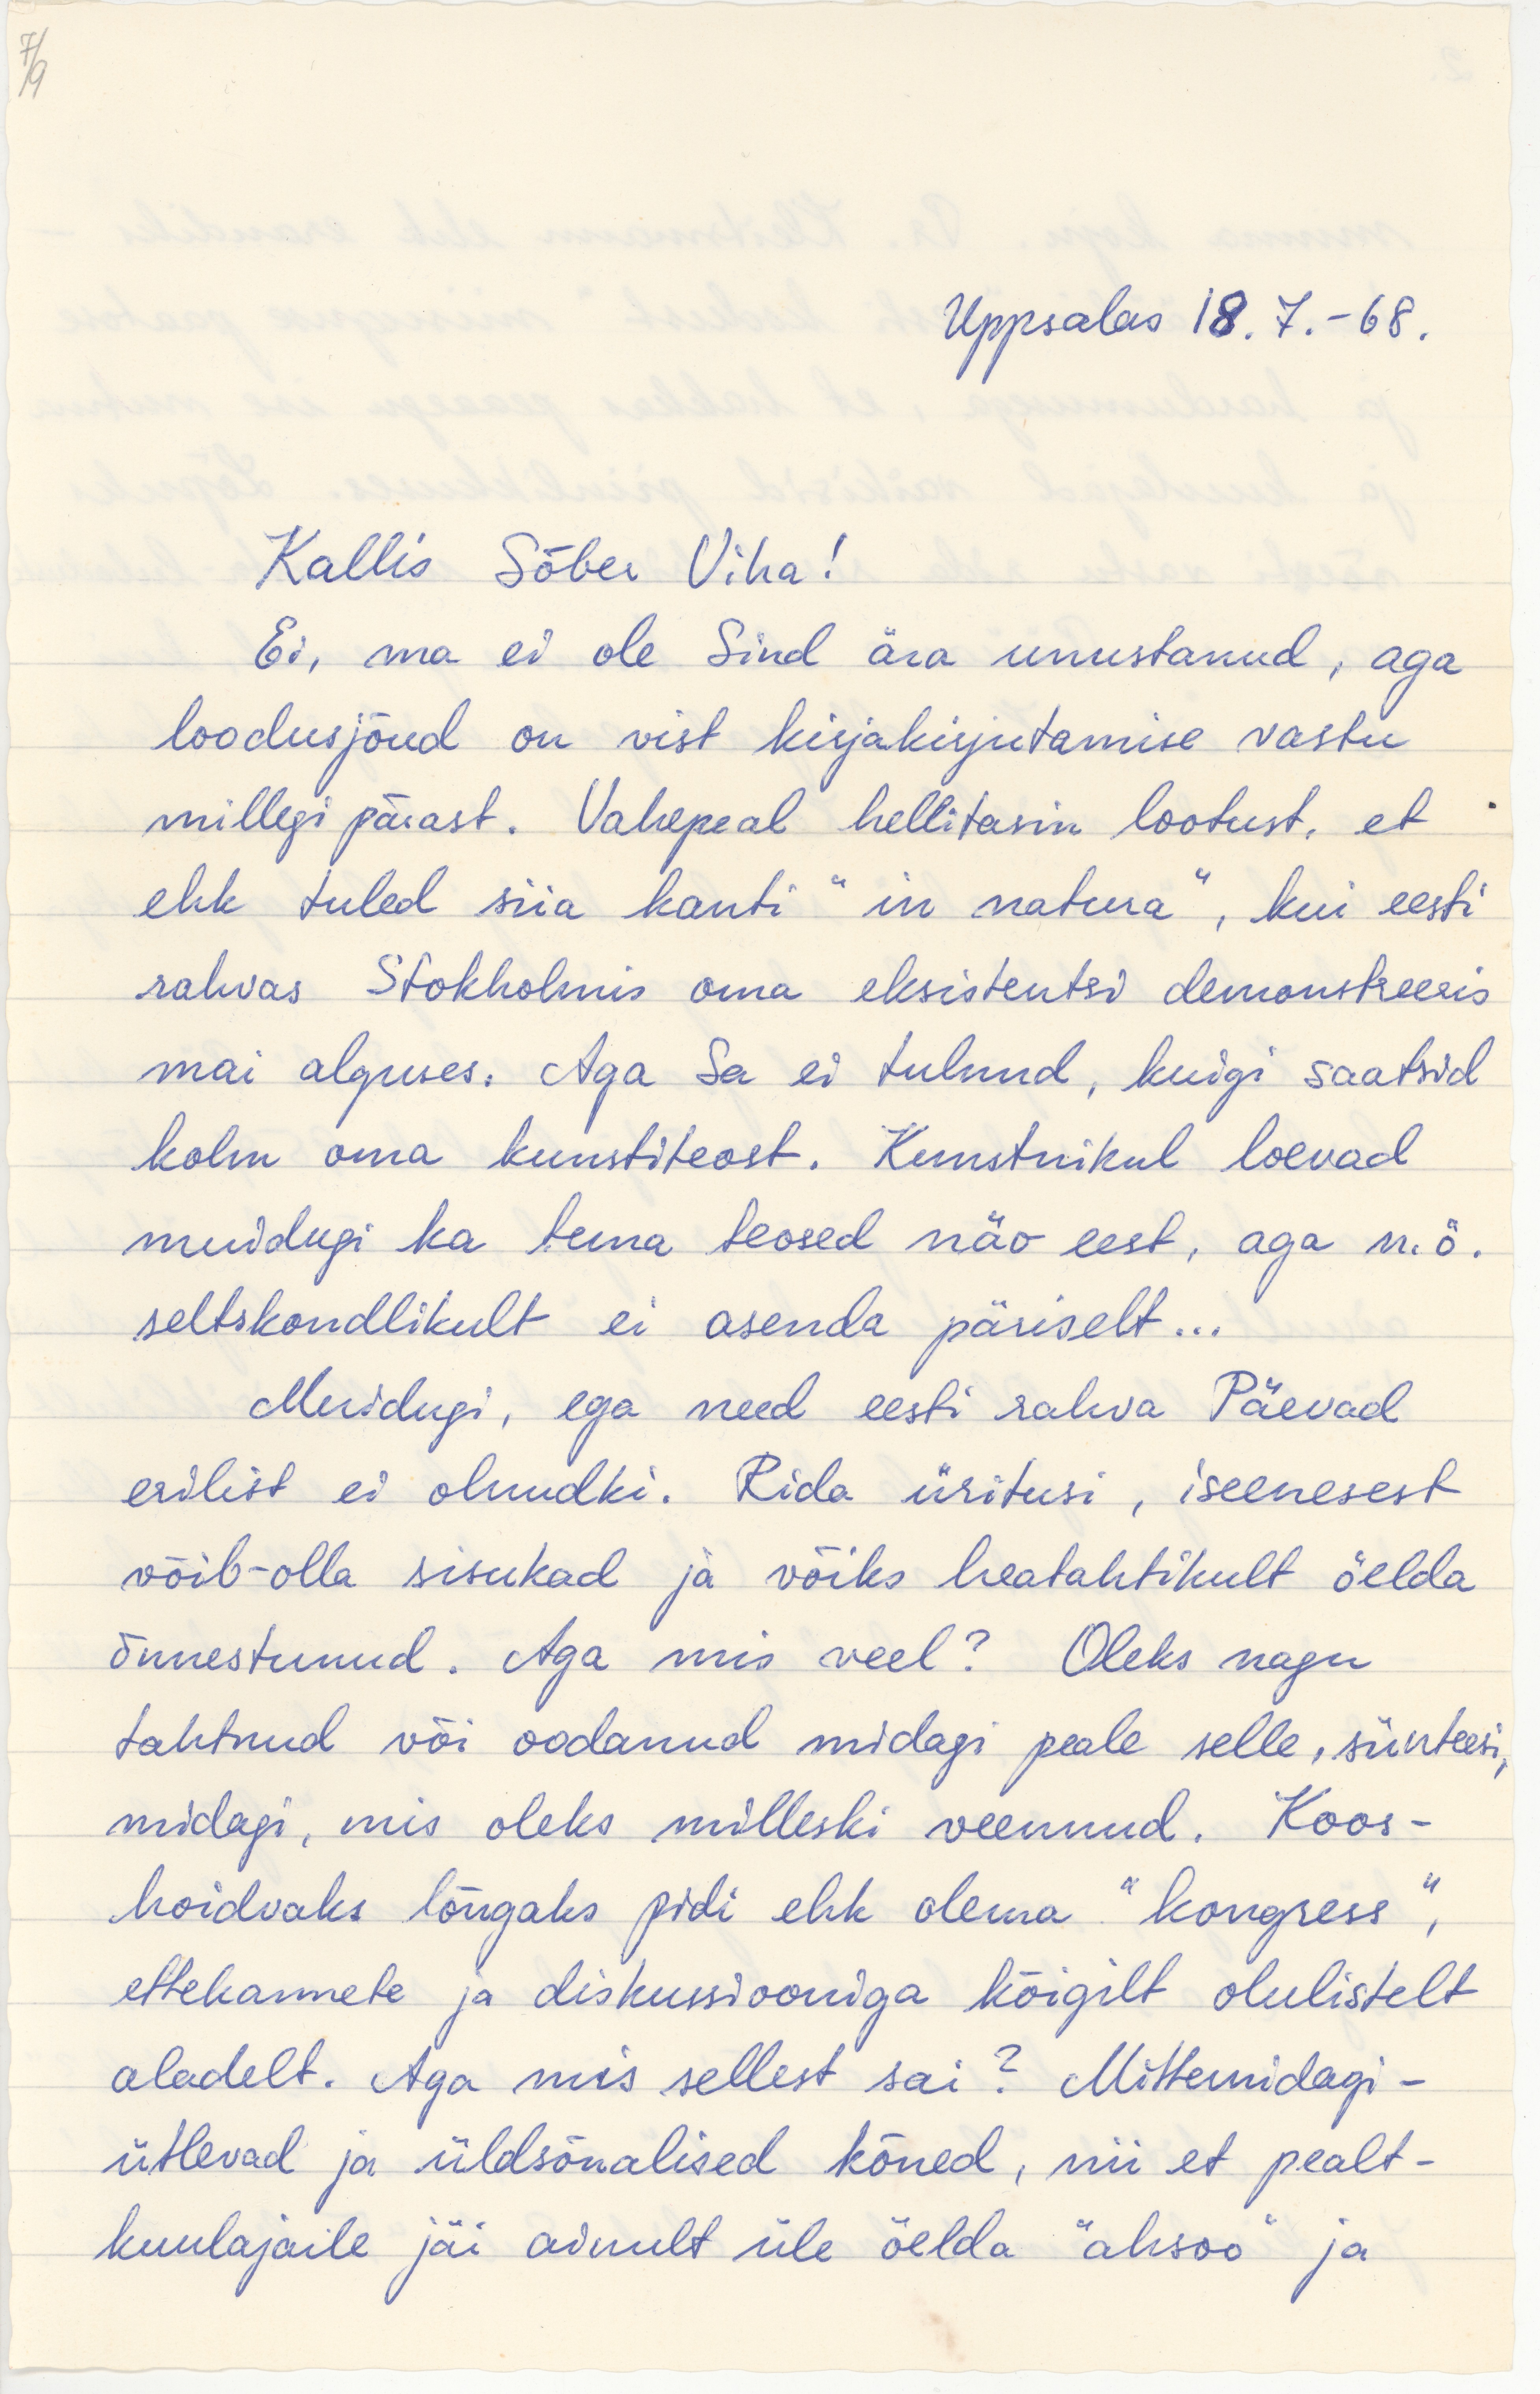 7/9
Uppsalas 18.7.-68.
Kallis Sõber Viha!
Ei, ma ei ole Sind ära unustanud, aga
loodusjõud on vist kirjakirjutamise vastu
millegi pärast. Vahepeal hellitasin lootust, et
ehk tuled siia kanti "in natura", kui eesti
rahvas Stokholmis oma eksistentsi demonstreeris
mai alguses. Aga Sa ei tulnud, kuigi saatsid
kolm oma kunstiteost. Kunstnikul loevad
muidugi ka tema teosed näo eest, aga n.ö.
seltskondlikult ei asenda päriselt...
Muidugi, ega need eesti rahva Päevad
erilist ei olnudki. Rida üritusi, iseenesest
võib-olla sisukad ja võiks heatahtikult öelda
õnnestunud. Aga mis veel? Oleks nagu
tahtnud või oodanud midagi peale selle, sünteesi,
midagi, mis oleks milleski veennud. Koos-
hoidvaks lõngaks pidi ehk olema "kongress",
ettekannete ja diskussiooniga kõigilt olulistelt
aladelt. Aga mis sellest sai? Mittemidagi-
ütlevad ja üldsõnalised kõned, nii et pealt-
kuulajaile jäi ainult üle öelda "ahsoo" ja